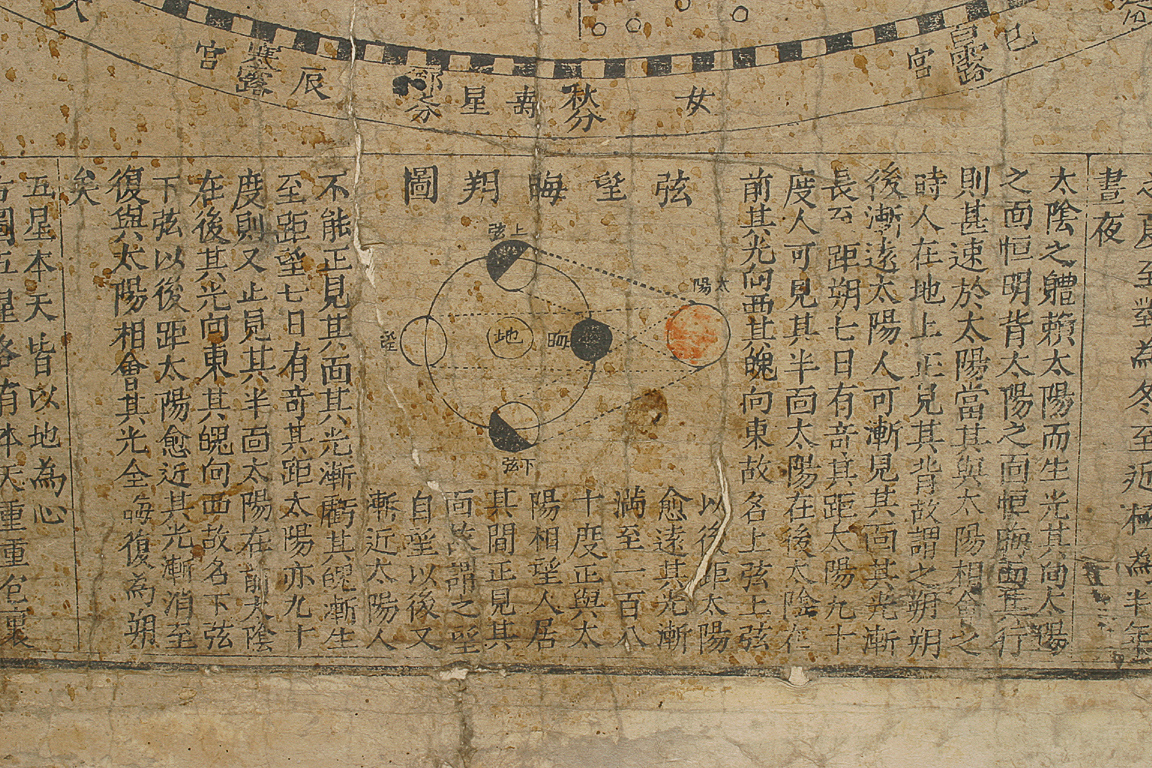 巳
白露
宮
女
秋分
壽星
辰
寒露
宮
至對為冬至近極為半年
晝夜
太陰之軆賴太陽而生光其向太陽
之面恒明背太陽之面恒晦而其行
則甚速於太陽當其與太陽相會之
時人在地上正見其背故謂之朔朔
後漸遠太陽人可漸見其面其光漸
長至距朔七日有奇其距太陽九十
度人可見其半面太陽在後太陰在
前其光向西其魄向東故名上弦上弦
弦望晦朔圖
太陽
上弦
晦
地
望
下弦
以後距太陽
愈遠其光漸
滿至一百八
十度正與太
陽相望人居
其間正見其
面故謂之望
自望以後又
漸近太陽人
不能正見其面其光漸虧其魄漸生
至距望七日有奇其距太陽亦九十
度則又止見其半面太陽在前太陰
在後其光向東其魄向西故名下弦
下弦以後距太陽愈近其光漸消至
復與太陽相會其光全晦復為朔
矣
五星本天皆以地為心
右圖五星各有本天重重包裹